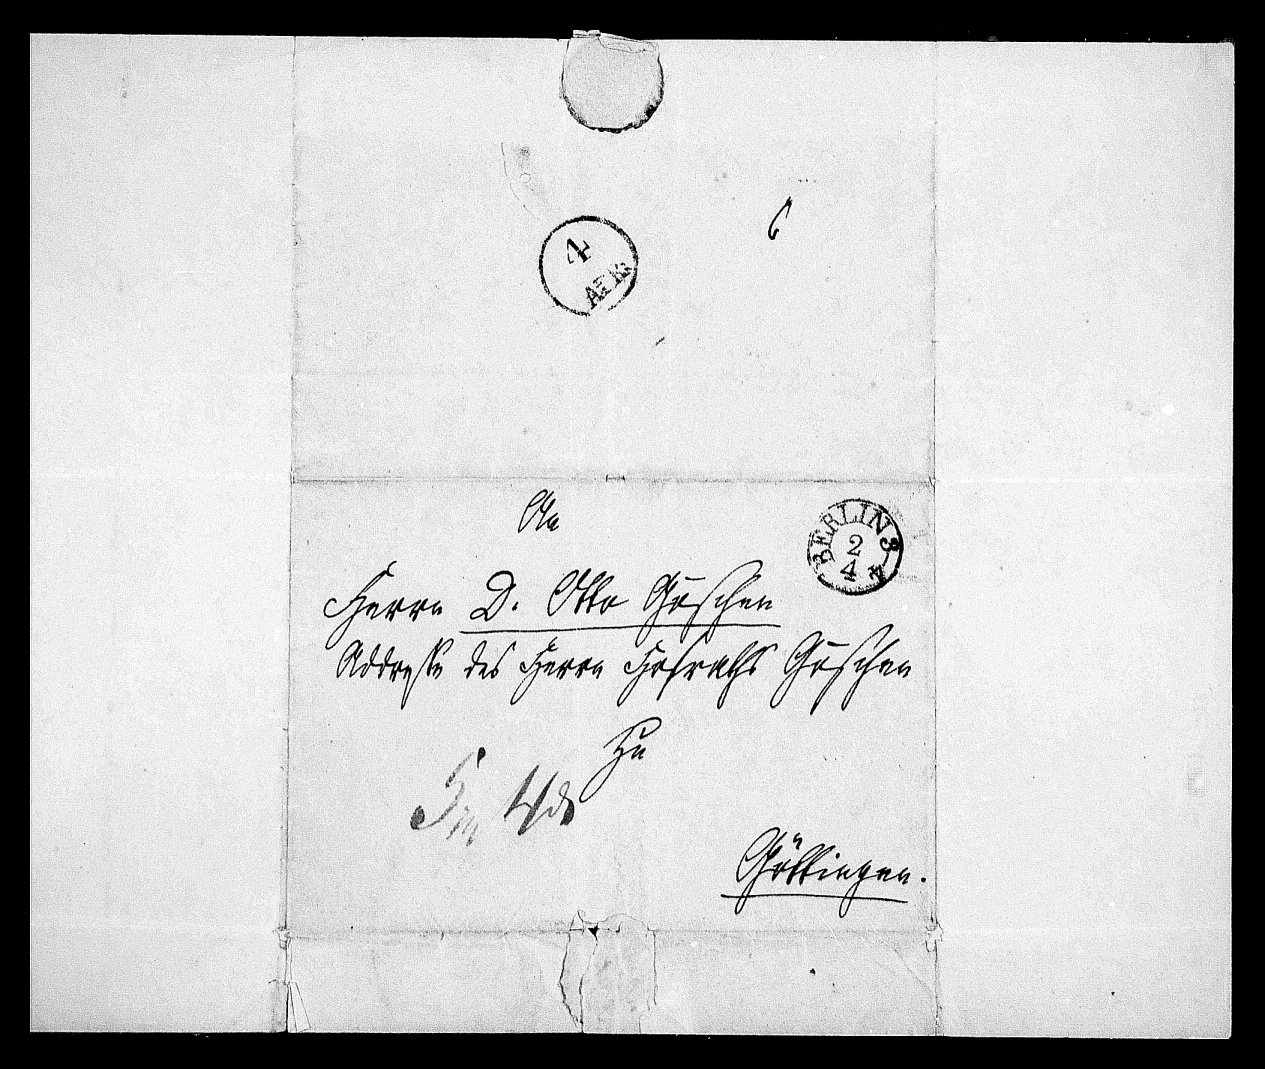 6
4
AFK
An
BERLIN 3-4
2
4
Herrn D. Otto Göschen
Addresse des Herrn Hofraths Göschen
zu
4
Göttingen.